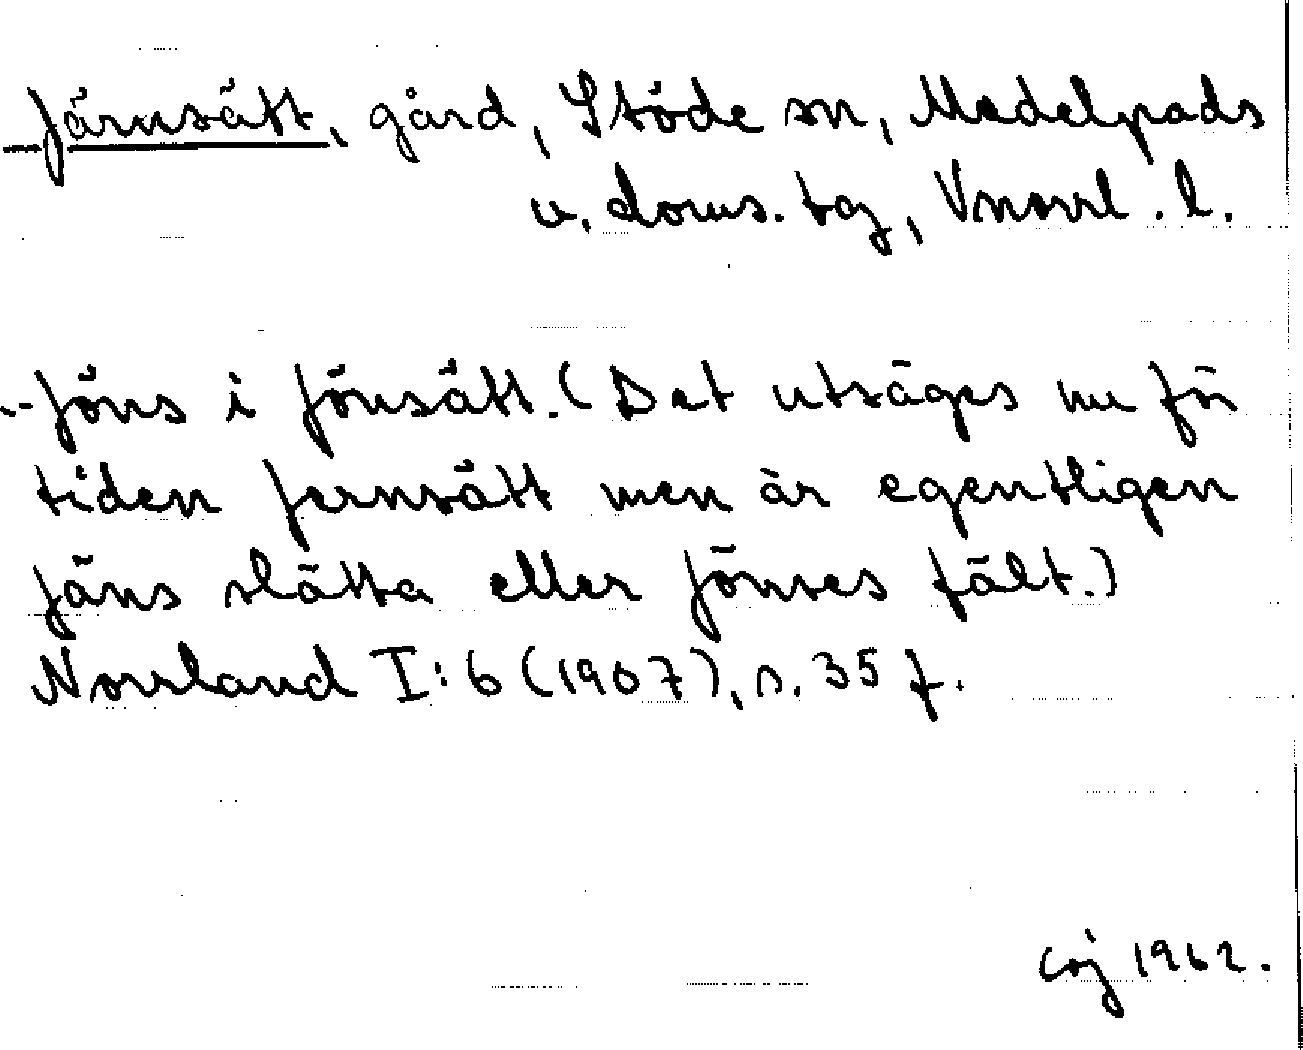 Järnsätt, gård, Stöde sn, Medelpads
v. doms. tg, Vnorrl. l.
Jöns i Jönsätt. (Det utsäges nu för
tiden Jernsätt men är egentligen
Jäns slätta eller Jönses fält.)
Norrland I:6 (1907), s. 35 f.
COJ 1962.